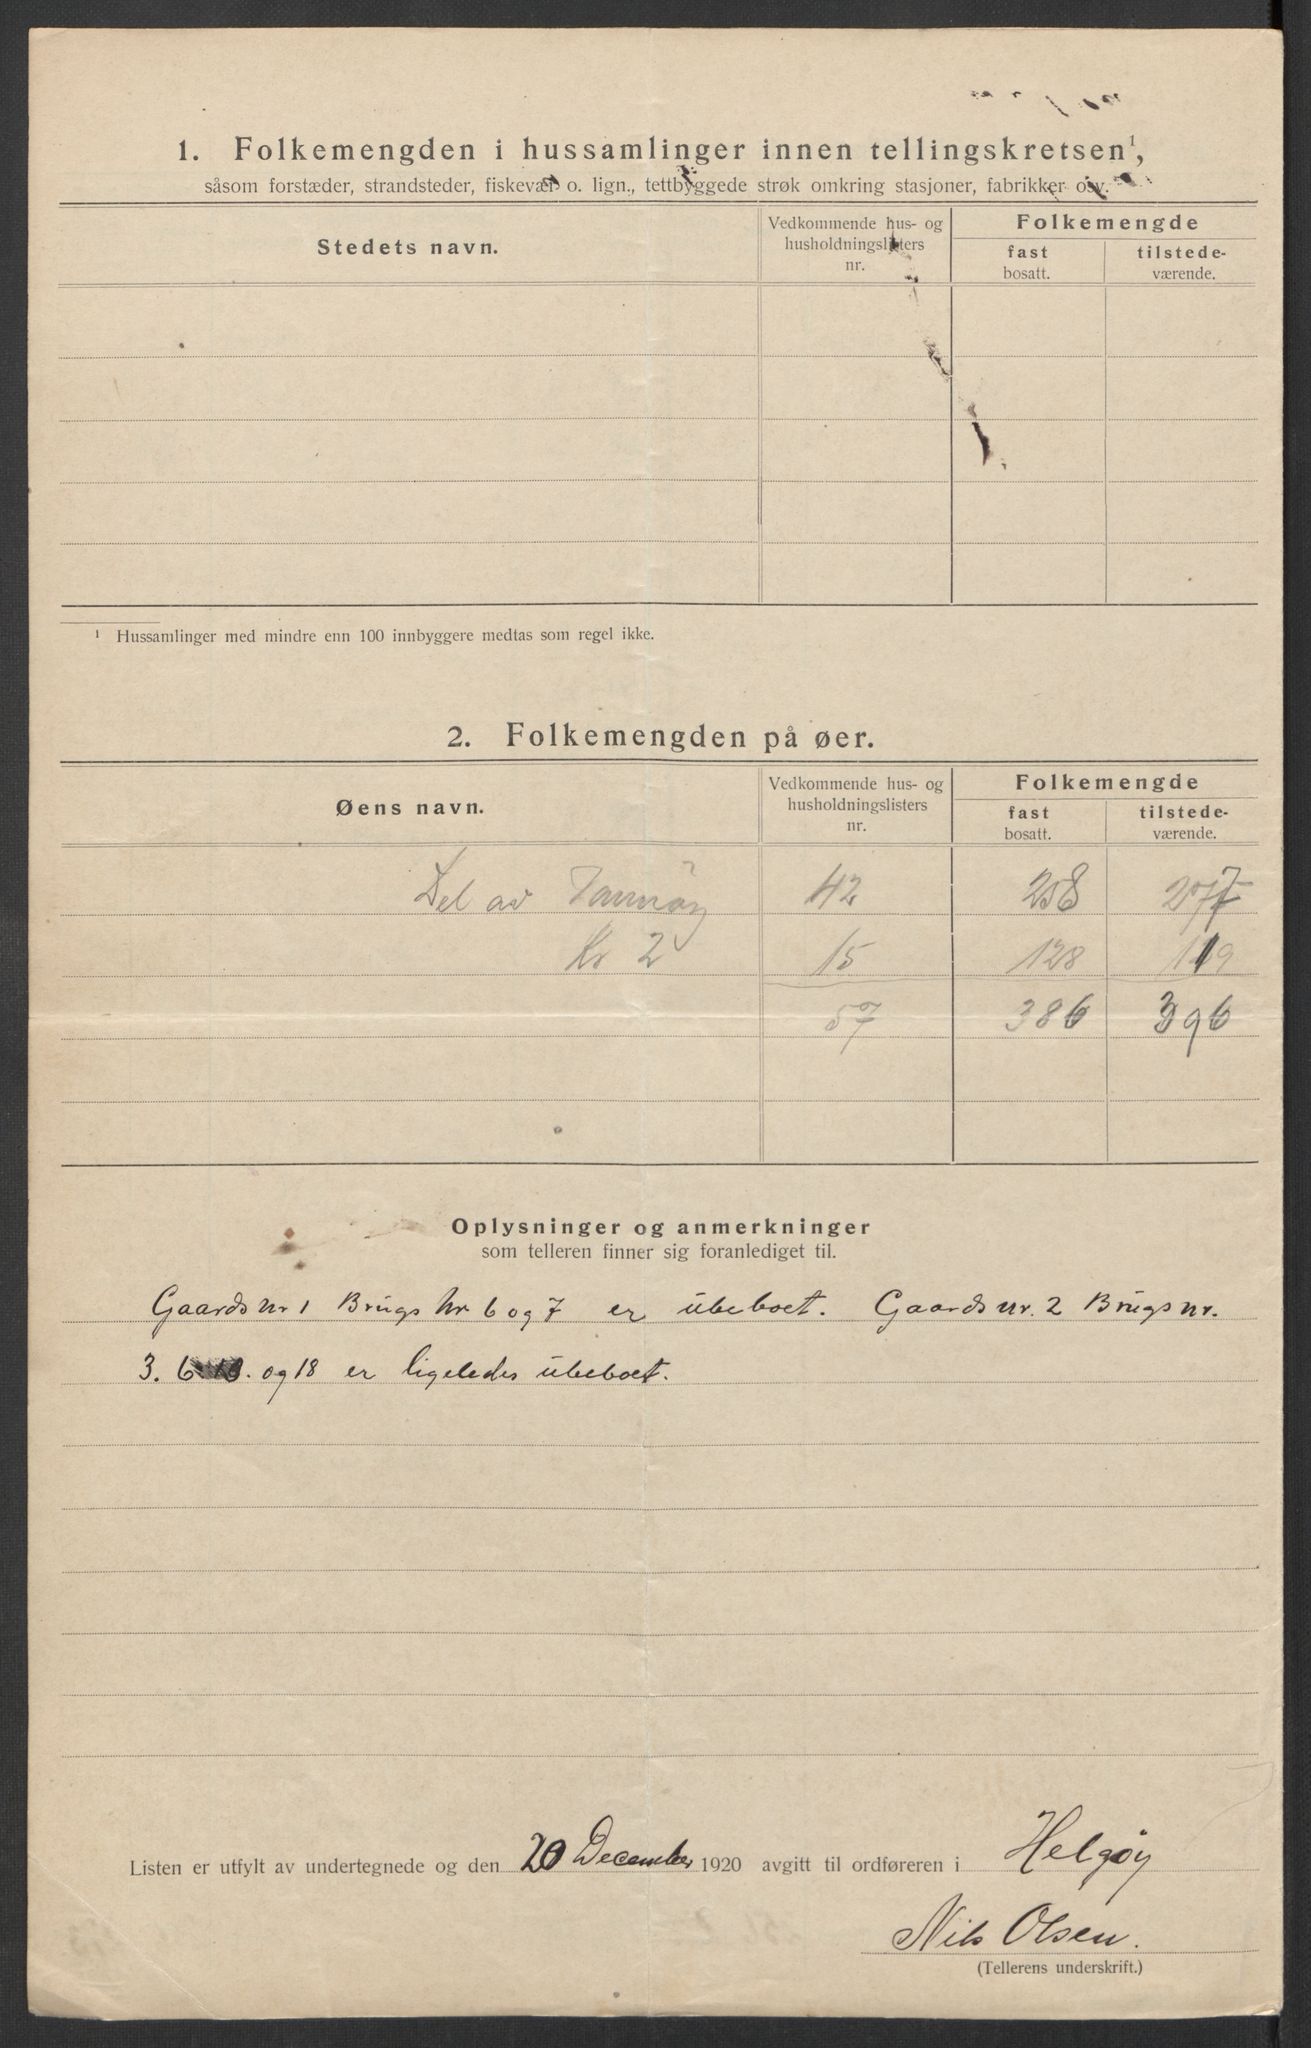 1. Folkemengden i hussamlinger innen tellingskretsen¹,
såsom forstæder, strandsteder, fiskevær o. lign., tettbyggede strøk omkring stasjoner, fabrikker osv.
Stedets navn.
Vedkommende hus- og
husholdningslisters
nr.
Folkemengde
fast
bosatt.
tilstede-
værende.
¹ Hussamlinger med mindre enn 100 innbyggere medtas som regel ikke.
2. Folkemengden på øer.
Øens navn.
Vedkommende hus- og
husholdningslisters
nr.
Folkemengde
fast
bosatt.
tilstede-
værende.
Del av 42 258 277
Kr 2 15 128 119
57 386 396
Oplysninger og anmerkninger
som telleren finner sig foranlediget til.
Gaards nr 1 Brugs Nr 6 og 7 er ubeboet. Gaards nr. 2 Brugs nr.
3. 6 og 18 er ligeledes ubeboet.
Listen er utfylt av undertegnede og den 20 December 1920 avgitt til ordføreren i Helgøy
Nils Olsen.
(Tellerens underskrift.)